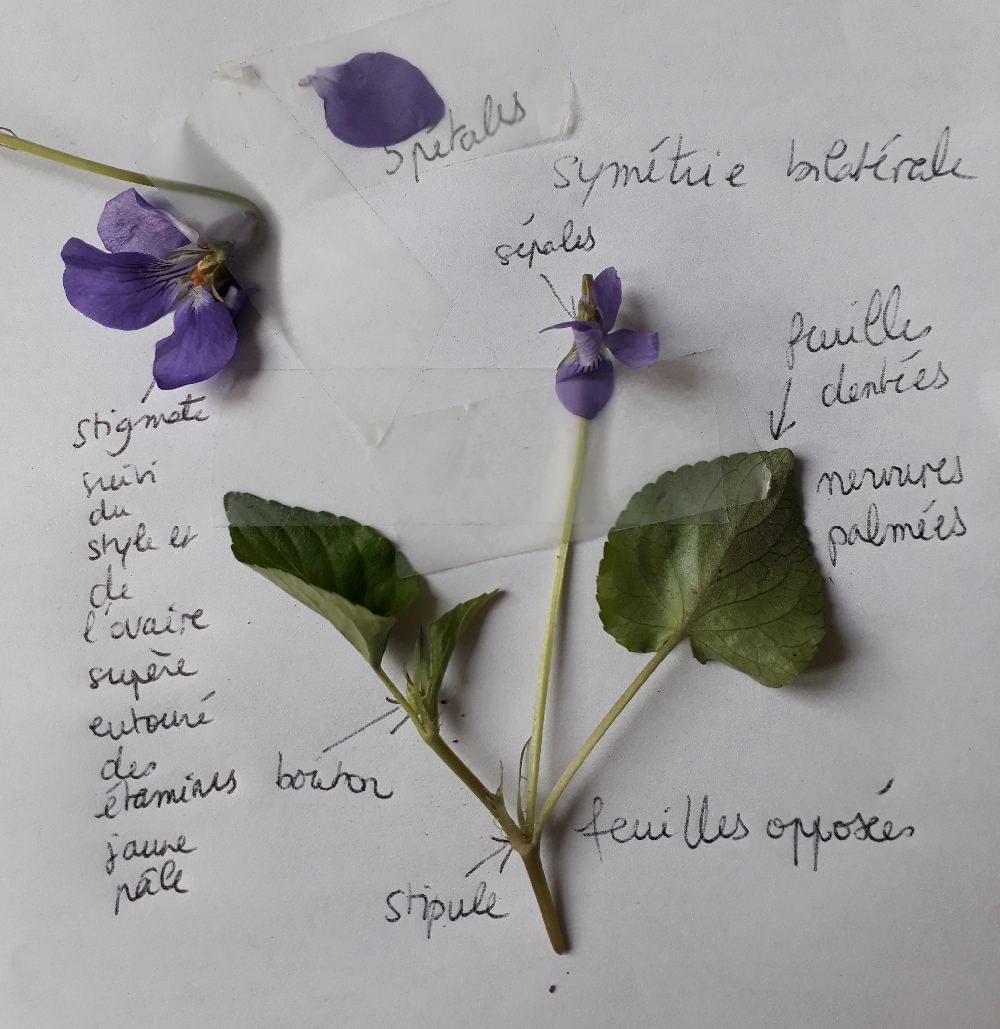 5 pétales
symétrie bilatérale
sépales
feuilles
dentées
nervures
palmées
stigmate
suivi
du
style et
de
l'ovaire
supère
entouré
des
étamines
jaune
pâle
bouton
feuilles opposées
stipule